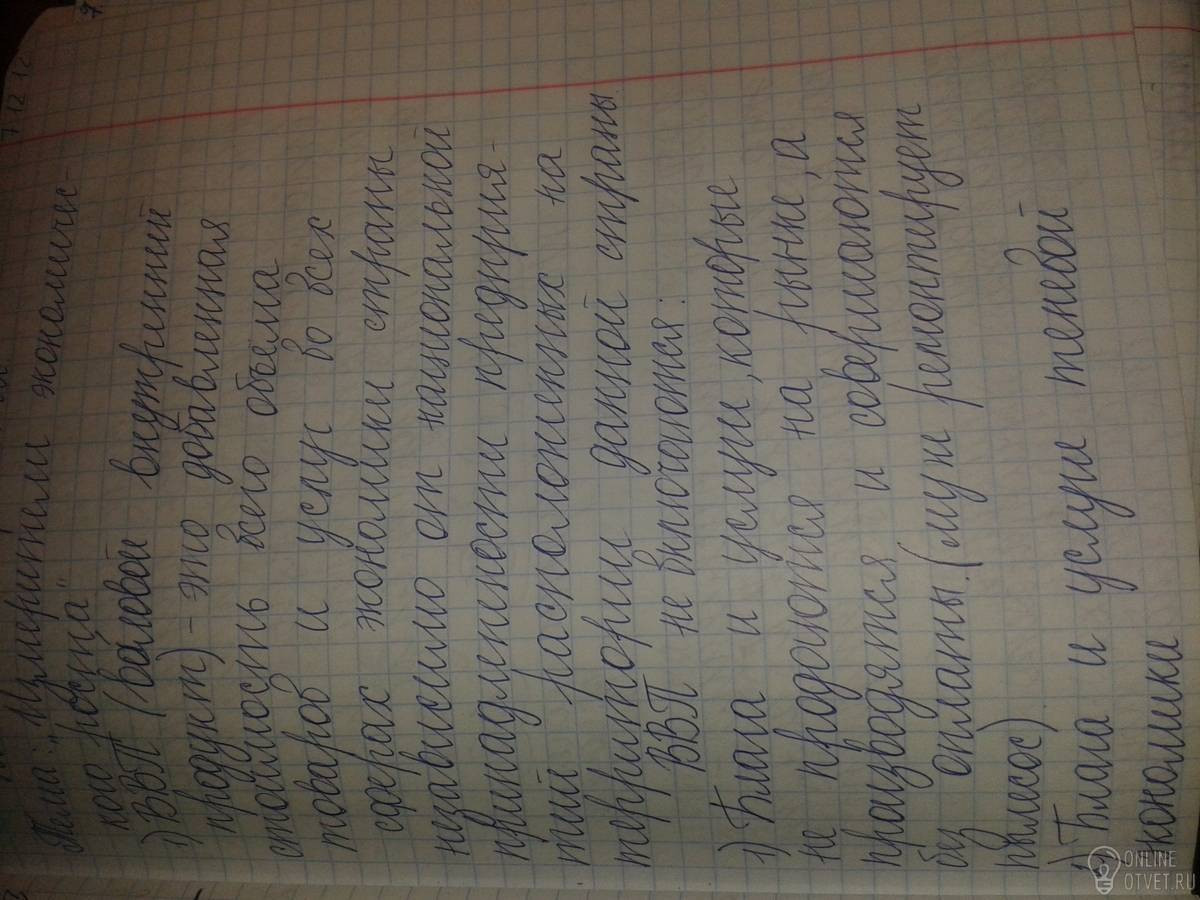 Тема: „Измерители экономичес-
кого роста"
1) ВВП (валовой внутренний
продукт) – это добавленная
стоимость всего объёма
товаров и услуг во всех
сферах экономики страны
независимо от национальной
принадлежности предприя-
тий расположенных на
территории данной страны
ВВП не включаются:
1) Блага и услуги, которые
не продаются на рынке, а
производятся и совершаются
без оплаты. (муж ремонтирует
пылесос)
2) Блага и услуги теневой
экономики
ONLINE
OTVET.RU